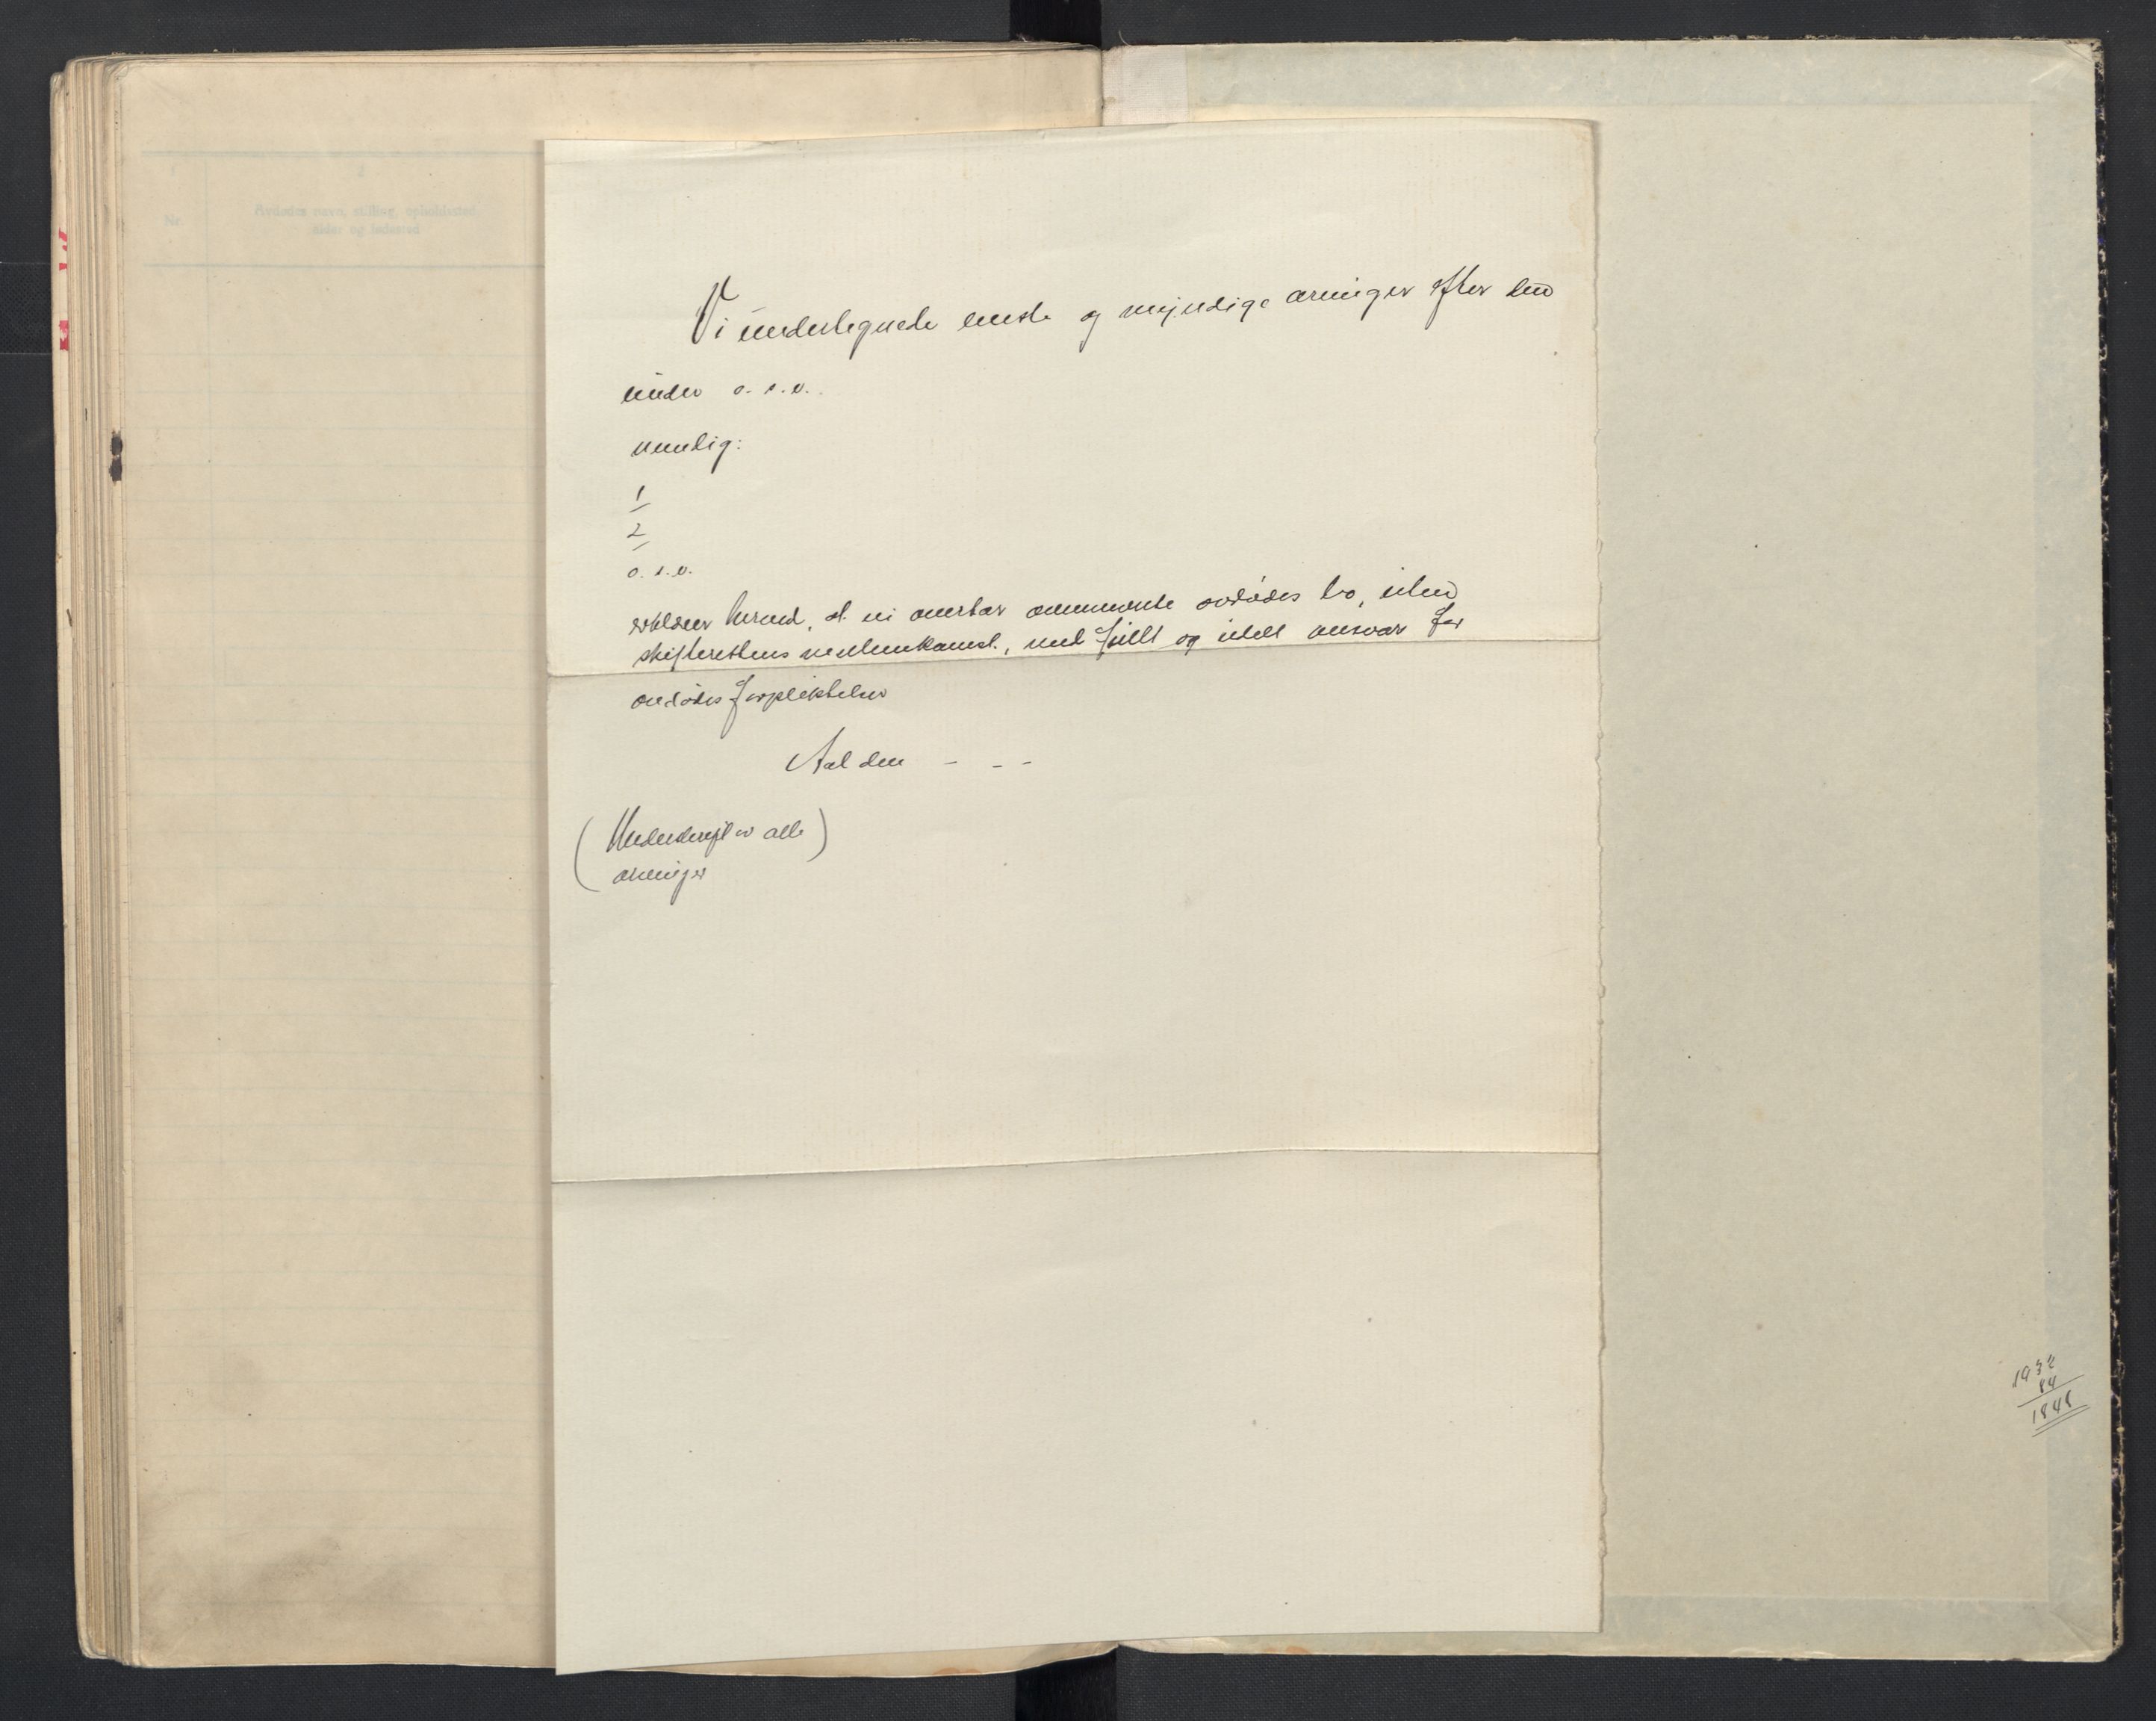 Nr.
Avdødes navn, stilling, opholdssted
alder og fødested
Vi undertegnede eneste og myndige arvinger efter den
under o. s. v.
nemlig:
1
2
o. s. v.
erklærer herved, at vi overtar avdødes bo, uten
skifterettens mellemkomst, med fuldt og helt ansvar for
avdødes forpliktelser
Aal den - - -
(Underskrift av alle)
arvinger
1932
84
1848